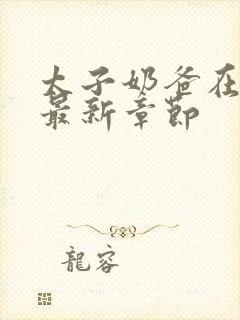 太子奶爸在
最新章节
龍容